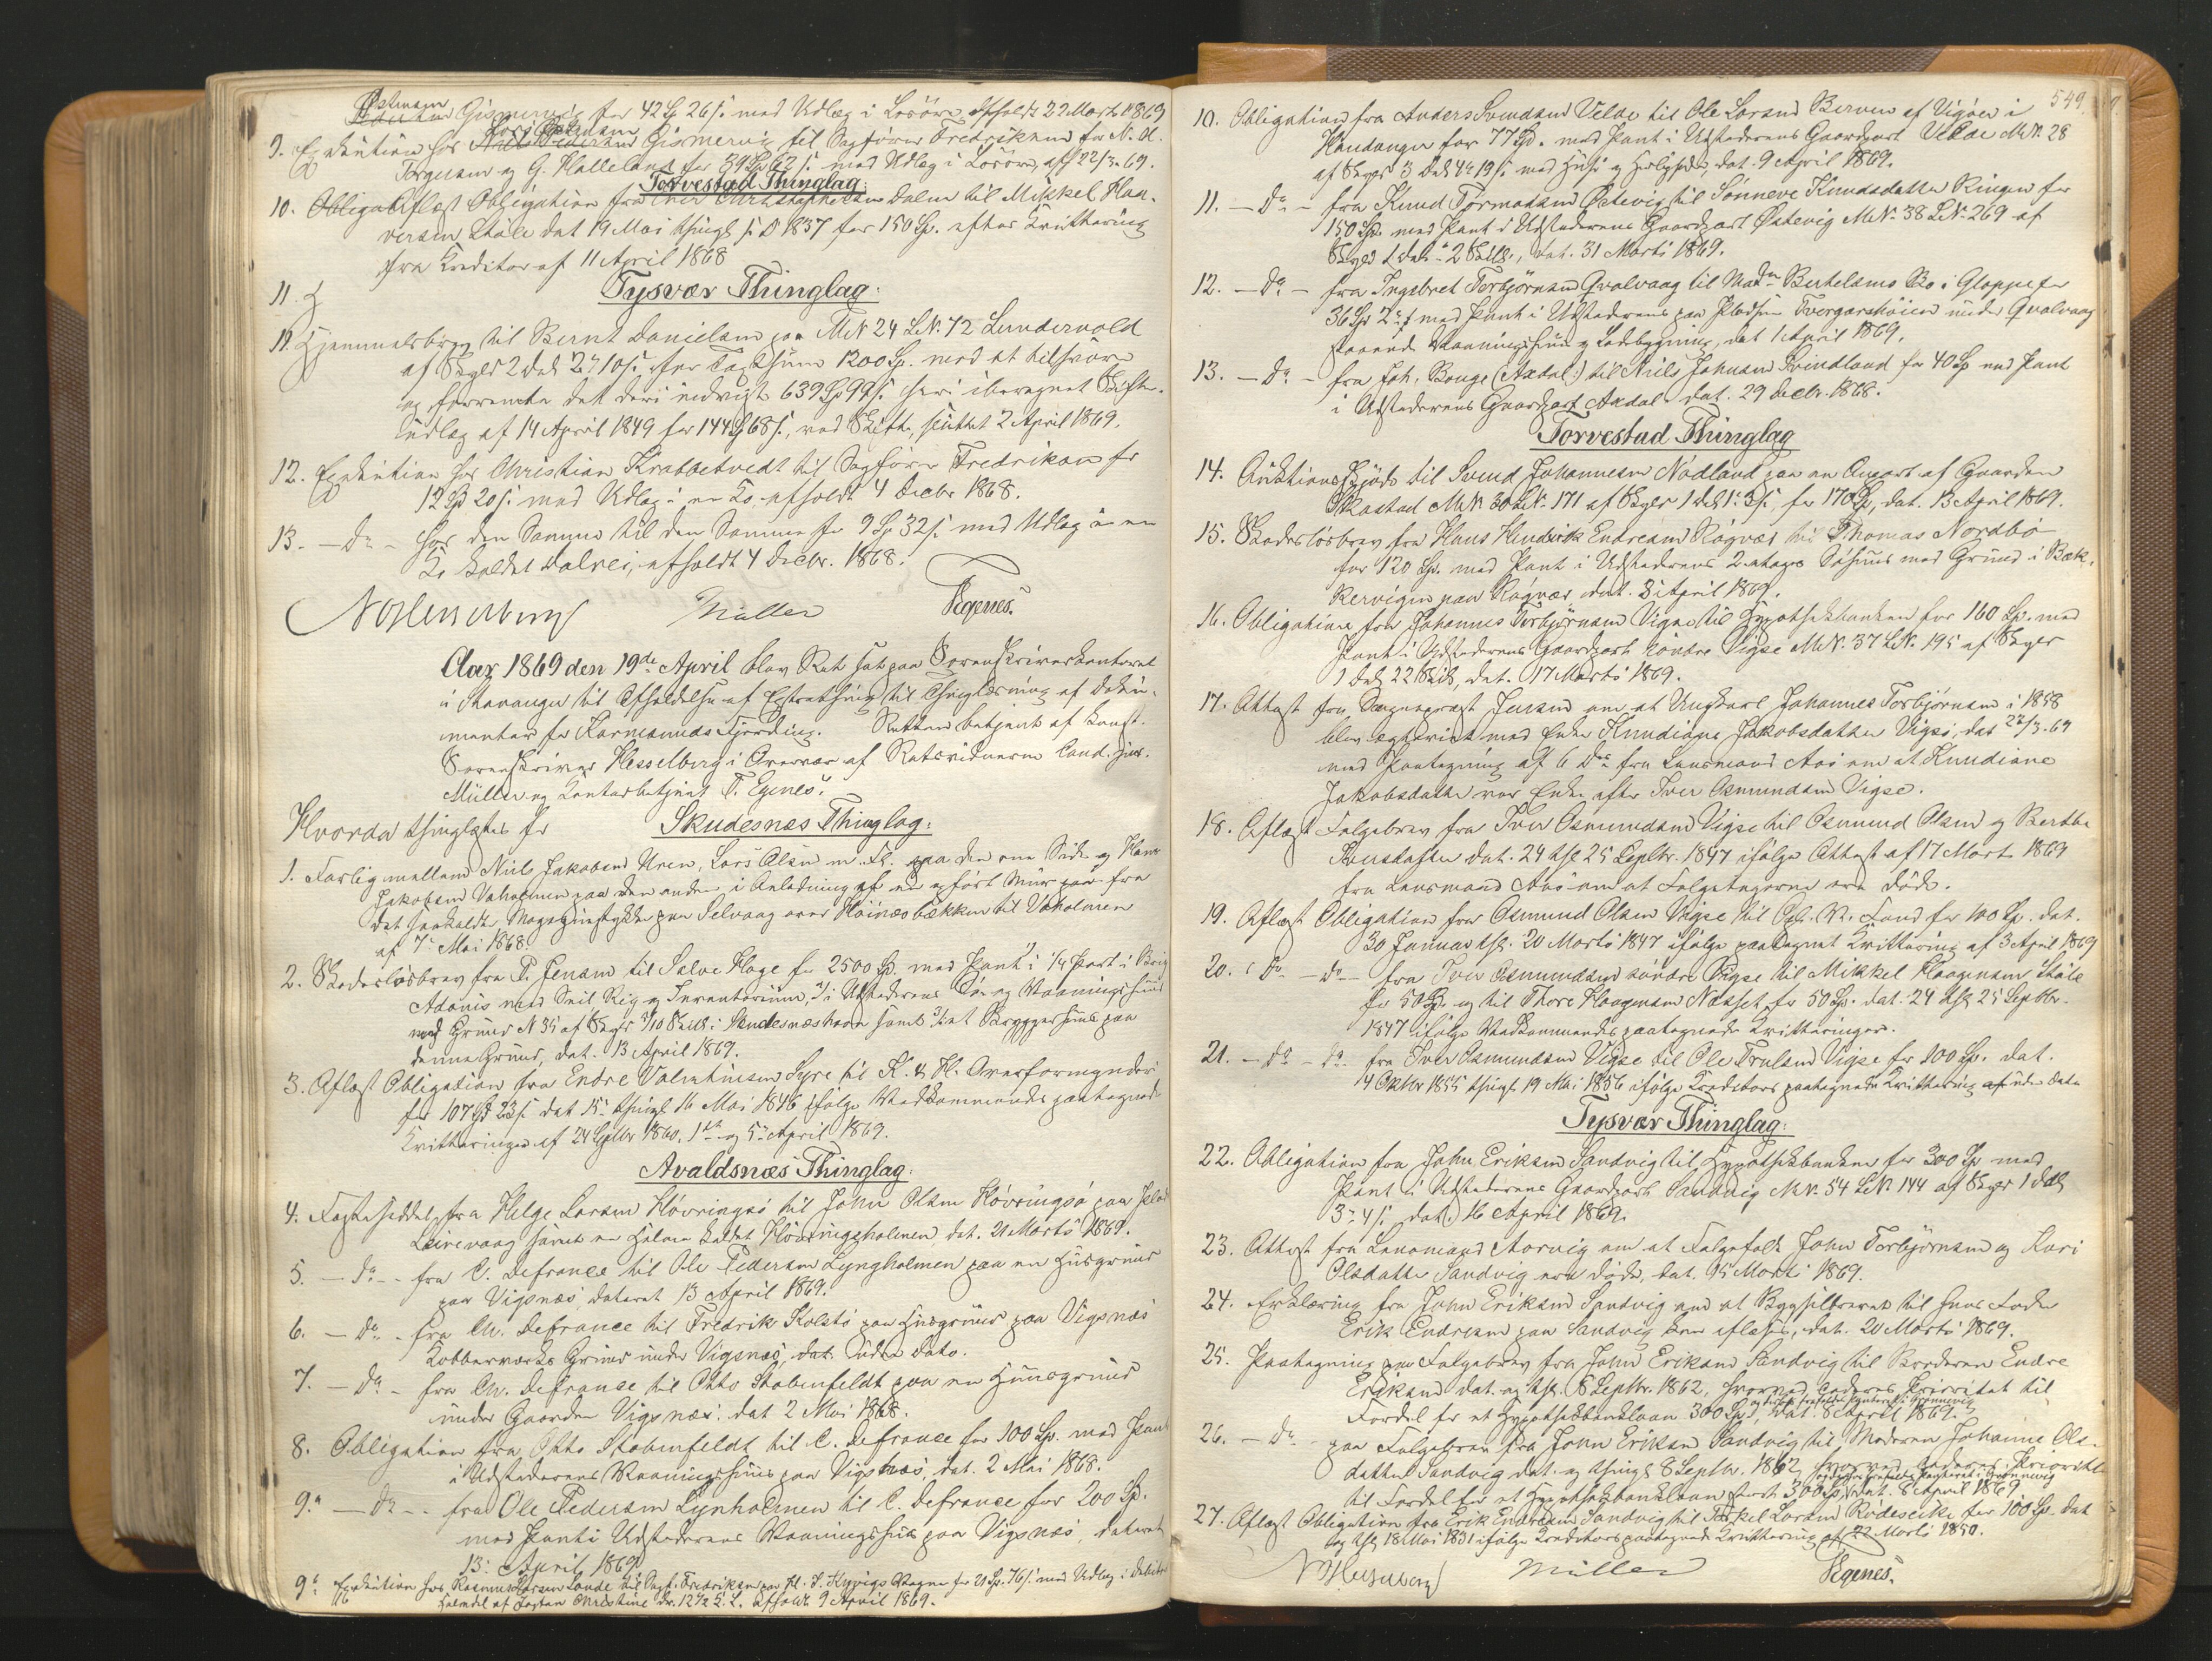 Østensen Gismervig for 42 Sp 26 s. med Udlæg i Løsöre afholdt 22 Marts 1869
9. Exekution hos Lars Østensen Gismervig til Sagförer Fredriksen for N. A.
Torgersen og G. Halleland for 34 Sp 62 s. med Udlæg i Lösöre, afh 22/3. 69.
Torvestad Thinglag:
10. Aflæst Obligation fra Iver Christophersen Dalen til Mikkel Haa-
versen Stole dat 19 Mai thingl. s. D 1837 for 150 Sp. efter Kvittering
fra Kreditor af 11 April 1868
11.
Tysvær Thinglag:
11. Hjemmelsbrev til Bernt Danielsen paa M.N 24 L.N. 72 Lundervold
af Skyld 2 Daler 2 ort 10 s. for Taxtsum 1200 Sp. mod at tilsvare
og forrente det deri indvigt 639 Sp 99 s. heri iberegnet Skifte-
udlæg af 14 April 1849 for 144 Sp 68 s., ved Skifte, sluttet 2 April 1869.
12. Exekution hos Christian Krabbetvedt til Sagförer Fredriksen for
12 Sp 20 s. med Udlæg i en Ko afholdt 4 Decbr 1868.
13. – Do – hos den Samme til den Samme for 9 Sp 32 s. med Udlæg i en
Ko kaldet Dalrei, afholdt 4 Decbr. 1868.
Müller Egenes.
Aar 1869 den 19de April blev Ret sat paa Sorenskriverkontoret
i Stavanger til Afholdelse af Extrathing til Thinglæsning af Doku-
menter for Karmsunds Fjerding. Retten betjent af Konst.
Sorenskriver Hesselberg i Overvær af Retsvidnerne Cand. jur.
Müller og Kontorbetjent T. Egenes.
Hvorda thinglæstes for Skudesnæs Thinglag:
1. Forlig mellem Niels Jakobsen Uren, Lars Olsen m. Fl. paa den ene Side og Hans
Jakobsen Vaholmen paa den anden i Anledning af en opført Muur paa fra
det saakaldte Magazinstykke paa Selvaag over Höinæsbækken til Vaholmen
af 7de Mai 1868.
2. Skadeslösbrev fra P. Jensen til Salve Hage for 2500 Sp. med Pant i 1/4 Part i Brig
Adonis med Seil Rig og Inventarium, i Udstederens Sö- og Vaaningshuus
med Grund N 35 af Skyld 3/10 Skill. i Skudesnæshavn samt et Bryggerhuus paa
denne Grund, dat. 13 April 1869.
3. Aflæst Obligation fra Endre Valentinsen Syre til K. & Hl. Overformynderi
for 107 Sp 23 s. dat 15de thingl 16 Mai 1846 ifölge Vedkommendes paategnede
Kvitteringer af 24 Septbr 1860, 1ste og 5te April 1869.
Avaldsnæs Thinglag:
4. Fæsteseddel fra Helge Larsen Hövringsö til John Olsen Hövringsö paa Plads
Leirevaag samt en Holme kaldet Hövringsholmen, dat. 21 Marts 1869.
5. – Do – fra C. Defrance til Ole Pedersen Lyngholmen paa en Huusgrund
paa Vigsnæs, dateret 13 April 1869.
6. – Do – fra Ch. Defrance til Fredrik Kolstö paa Huusgrund paa Vigsnæs
Kobberværks Grund under Vigsnæs, dat. uden Dato.
7. – Do – fra Ch. Defrance til Otto Stobenfeldt paa en Huusgrund
under Gaarden Vigsnæs, dat 2 Mai 1868.
8. Obligation fra Otto Stobenfeldt til C. Defrance for 100 Sp. med Pant
i Udstederens Vaaningshuus paa Vigsnæs, dat. 2 Mai 1868.
9.a – Do – fra Ole Pedersen Lynholmen til C. Defrance for 200 Sp.
med Pant i Udstederens Vaaningshuus paa Vigsnæs, dateret
13de April 1869
9b Exekution hos Rasmus Larsen Lande til Sagf. Fredriksen for 21 Sp. 76 s. med Udlæg i Debitors
Halvdel af Jagten Christine dr. 12 1/2 C. L. afholdt 9 April 1869.
549
10. Obligation fra Anders Svendsen Velde til Ole Larsen Berven af Vigöer i
Hardanger for 77 Sp. med Pant i Udstederens Gaardpart Velde M.N. 28
af Skyld 3 Dal 4 ort 19 s. med Huse og Herligheder, dat. 9 April 1869.
11. – Do – fra Knud Tormodsen Östevig til Sönneve Knudsdatter Ringen for
150 Sp. med Pant i Udstederens Gaardpart Östevig M.N. 38 L.N. 269 af
Skyld 1 Daler 2 Skill., dat. 31 Marts 1869.
12. – Do – fra Ingebret Torbjörnsen Qvalvaag til Madm Bertelsens Bo i Gloppe for
36 Sp 2 ort med Pant i Udstederens paa Pladsen Tvergarshöien under Qvalvaag
staaende Vaaningshuus og Ladebygning, dat 1 April 1869.
13. – Do – fra Joh. Bouge (Axdal) til Niels Johnsen Grindland for 40 Sp med Pant
i Udstederens Gaardpart Axdal dat. 29 Decbr. 1868.
Torvestad Thinglag
14. Auktionsskjöde til Svend Johannesen Nodland paa en Anpart af Gaarden
Skastad M.N. 30 L.N. 171 af Skyld 1 Dal 1 ort 3 s. for 170 Sp, dat. 13 April 1869.
15. Skadeslösbrev fra Hans Hendrik Endresen Rögvær til Thomas Nordbö
for 120 Sp. med Pant i Udstederens 2 etages Söhuus med Grund i Bæk-
kervigen paa Rögvær, dat. 3 April 1869.
16. Obligation fra Johannes Torbjörnsen Vigse til Hypothekbanken for 160 Sp. med
Pant i Udstederens Gaardpart söndre Vigse M.N. 37 L.N. 195 af Skyld
1 Dal 22 Skill, dat. 17 Marts 1869.
17. Attest fra Sognepræst Jensen om at Ungkarl Johannes Torbjörnsen i 1858
blev ægteviet med Enke Knudiane Jakobsdatter Vigse, dat 22/3. 69
med Paategning af 6 Ds fra Lensmand Aas om at Knudiane
Jakobsdatter var Enke efter Iver Osmundsen Vigse.
18. Aflæst Folgebrev fra Iver Osmundsen Vigse til Osmund Olsen og Berthe
Iversdatter dat. 24 thgl 25 Septbr. 1847 ifölge Attest af 17 Marts 1869
fra Lensmand Aas om at Folgetagerne ere döde.
19. Aflæst Obligation fra Osmund Olsen Vigse til Opl. V. Fond for 100 Sp. dat.
30 Januar thgl. 20 Marts 1847 ifölge paategnet Kvittering af 3 April 1869
20. – Do – Do – fra Iver Osmundsen söndre Vigse til Mikkel Haagensen Stole
for 50 Sp. og til Thore Haagensen Næsset for 50 Sp. dat. 24 thgl 25 Septbr.
1847 ifölge Vedkommendes paategnede Kvitteringer.
21. – Do – Do – fra Iver Osmundsen Vigse til Ole Trulsen Vigse for 100 Sp. dat.
14 Oktbr 1855 thingl. 19 Mai 1856 ifölge Kreditors paategnede Kvittering af uden Dato
Tysvær Thinglag:
22. Obligation fra John Eriksen Sandvig til Hypothekbanken for 300 Sp med
Pant i Udstederens Gaardpart Sandvig M.N. 54 L.N. 144 af Skyld 1 Dal
3 ort 4 s. dat. 16 April 1869.
23. Attest fra Lensmand Aarvig om at Folgefolk John Torbjörnsen og Kari
Olsdatter Sandvig ere döde, dat. 15 Marts 1869.
24. Erklæring fra John Eriksen Sandvig om at Bygselbrevet til hans Fader
Erik Endresen paa Sandvig kan aflæses, dat. 20 Marts 1869.
25. Paategning paa Folgebrev fra John Eriksen Sandvig til Broderen Endre
Eriksen dat. og thgl. 8 Septbr. 1862, hvorved cederes Prioritet til
Fordel for et Hypothekbanklaan 300 Sp., dat. 8 April 1869.
26. – Do – paa Folgebrev fra John Eriksen Sandvig til Moderen Johanne Ols-
datter Sandvig dat. og thingl 8 Septbr. 1862 hvorved cederes Prioritet
til Fordel for et Hypothekbanklaan stort 300 Sp, dat. 8 April 1869
27. Aflæst Obligation fra Erik Endresen Sandvig til Torkel Larsen Rödeseike for 100 Sp. dat
og thgl 18 Mai 1831 ifölge Kreditors paategnede Kvittering af 22 Marti 1850.
Müller Egenes.